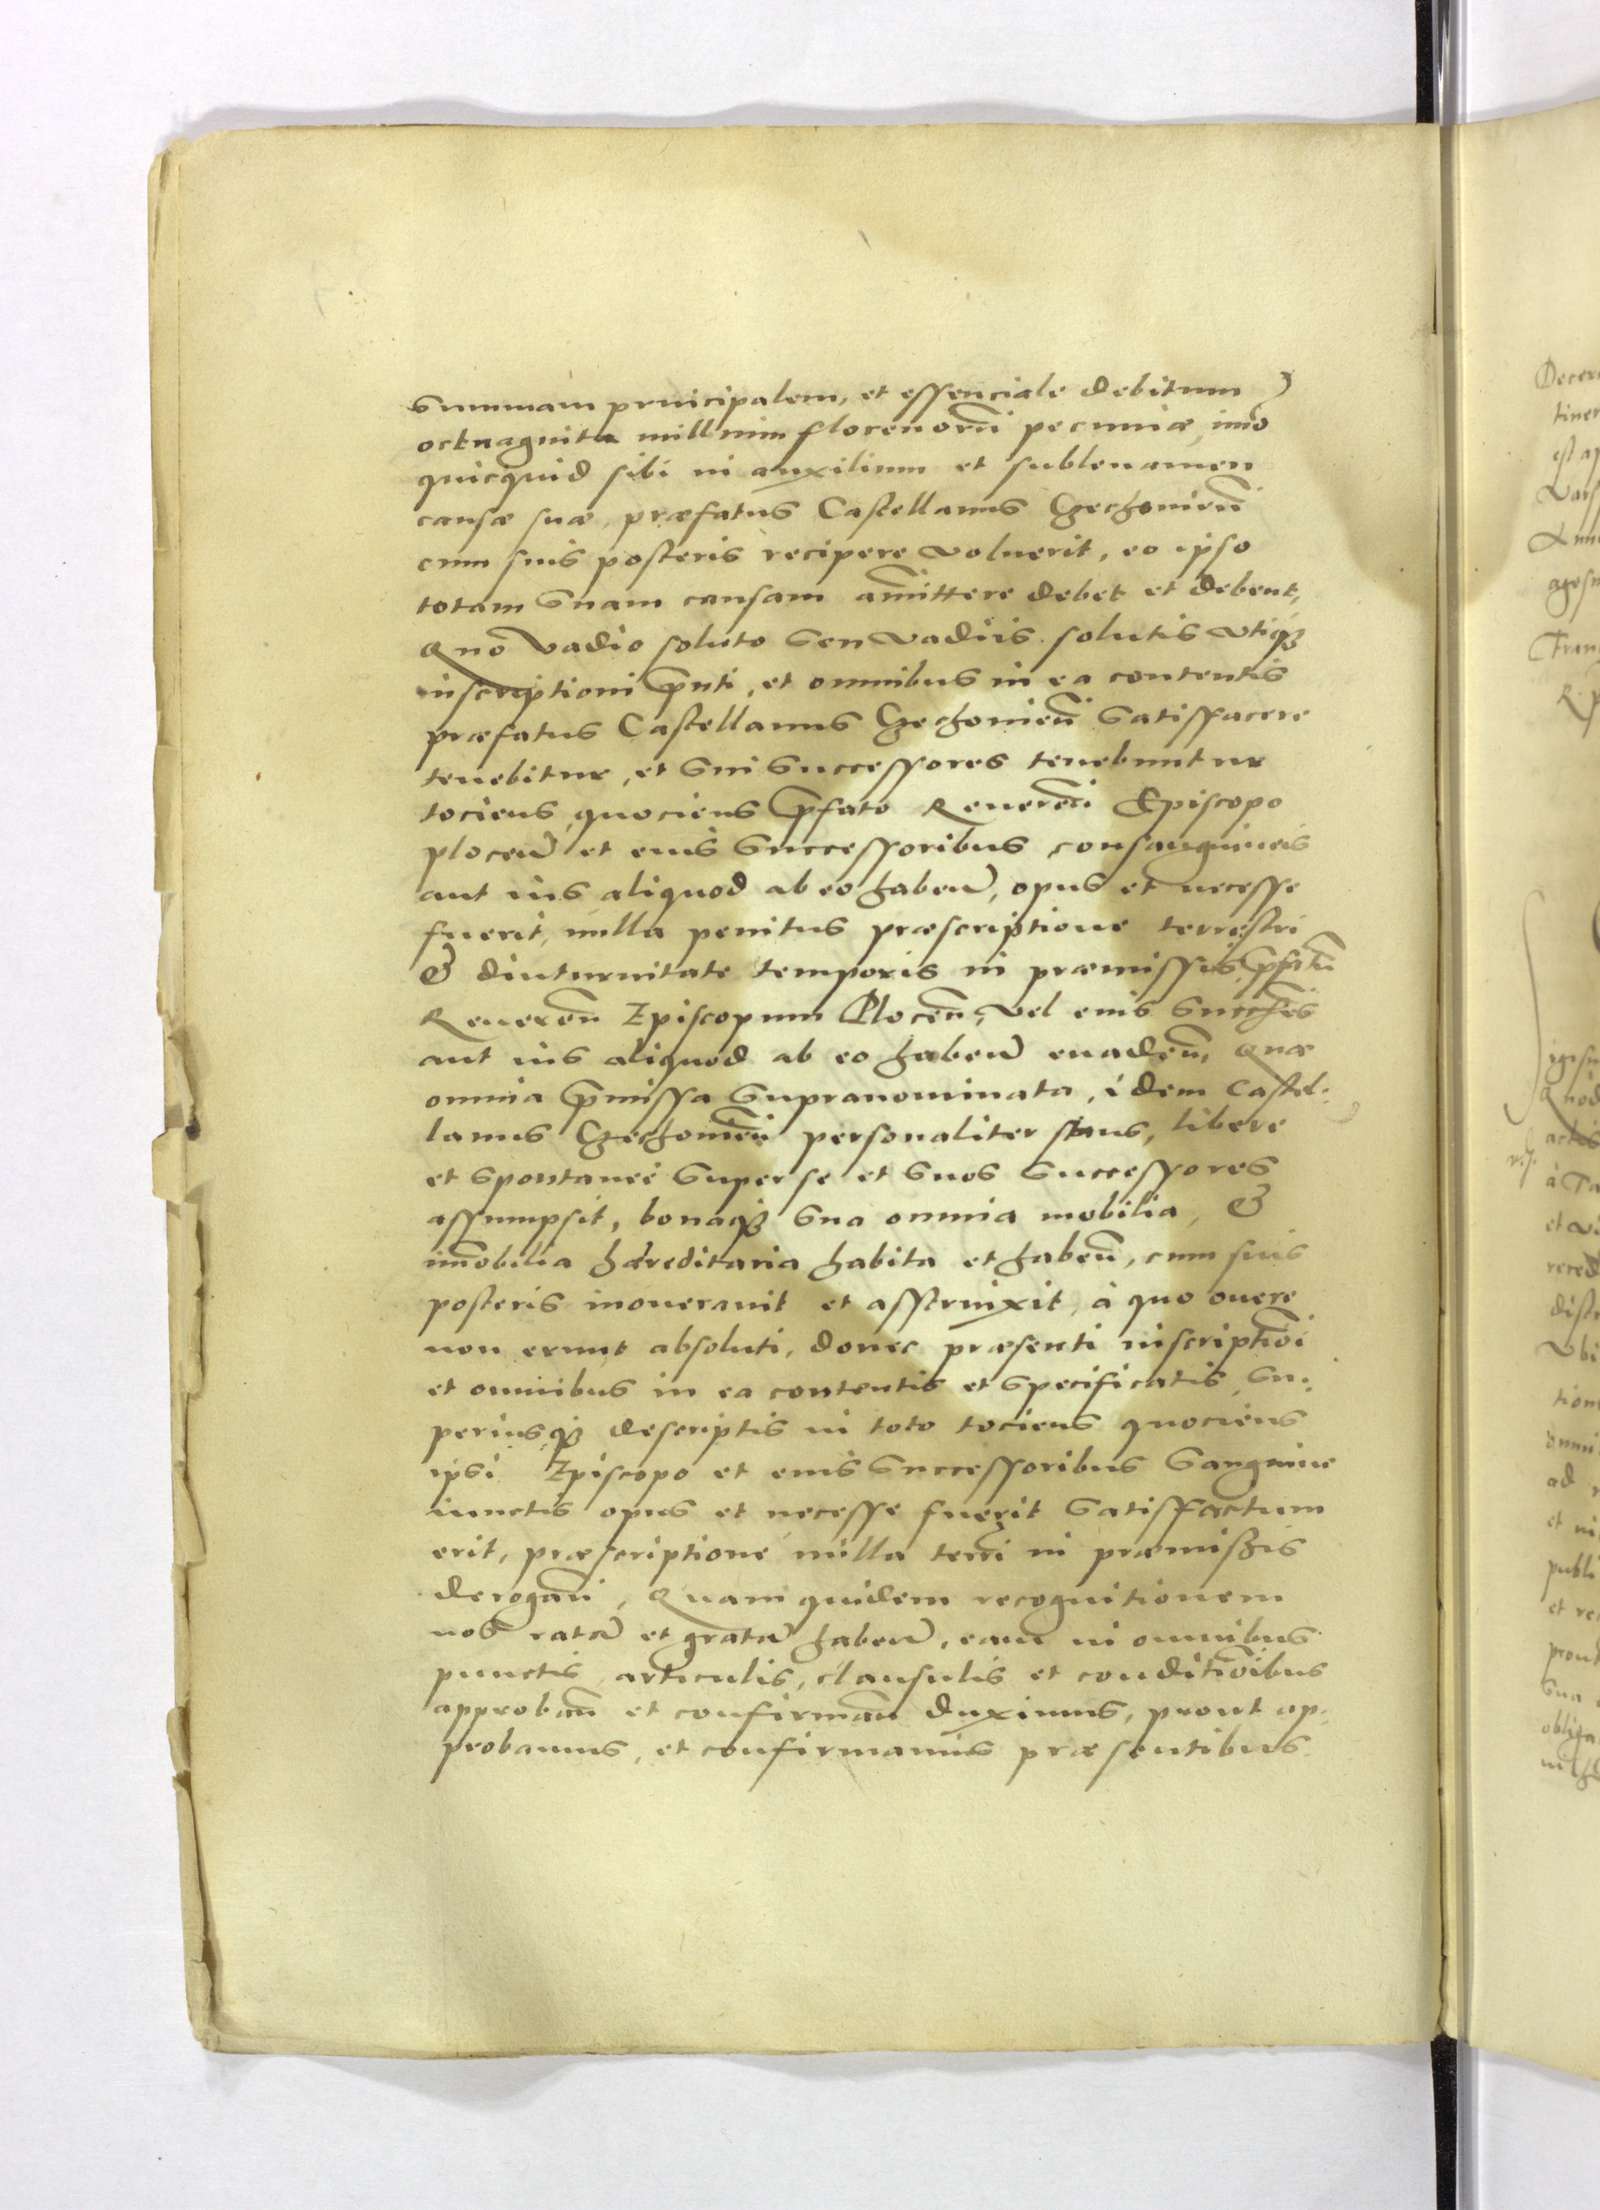 Summam principalem, et essenciale debitum
octuaginta millium florenorū pecuniæ, imo
quicquid sibi in auxilium et subleuamen
causæ suæ, præfatus Castellanus Czechouieñ
cum suis posteris recipere voluerit, eo ipso
totam Suam causam amittere debet et debent,
Quo vadio soluto Seu vadiis solutis vtiqȝ
inscriptioni pñti, et omnibus in ea contentis
præfatus Castellanus Czechouieñ Satisfacere
tenebitur, et Sui Successores tenebuntur
tociens, quociens pfato Reuereñ Episcopo
ploceñ et eius Successoribus consanguineis
aut ius aliquod ab eo habeñ, opus et necesse
fuerit, nulla penitus præscriptione terrestri
& diuturnitate temporis in præmissis pfatū
Reuereñ Episcopum Ploceñ, vel eius Succēs
aut ius aliquod ab eo habeñ euadeñ, Quæ
omnia pmissa Supranominata, idem Castel:
lanus Czechouieñ personaliter stans, libere
et Spontanee Super se et Suos Successores
assumpsit, bonaqȝ Sua omnia mobilia, &
imobilia hæreditaria habita et habeñ, cum suis
posteris inonerauit et asstrinxit, à quo onere
non erunt absoluti, donec præsenti inscriptioi
et omnibus in ea contentis et Specificatis, Su:
periusqȝ descriptis in toto tociens quociens
ipsi Episcopo et eius Successoribus Sanguine
iunctis opus et necesse fuerit Satisfactum
erit, præscriptione nulla terri in præmissis
derogañ, Quam quidem recognitionem
nos ratā et gratā habeñ, eam in omnibus
punctis, articulis, clausulis et conditioibus
approbañ et confirmañ duximus, prout ap:
probamus, et confirmamus præsentibus